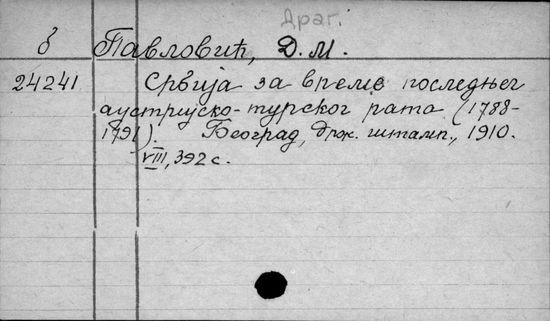 Драг.
б Павловић, Д. М.
24241 Србија за време последњег
аустријско-турског рата (1788-
1791). Београд, држ. штамп., 1910.
VIII, 392 с.